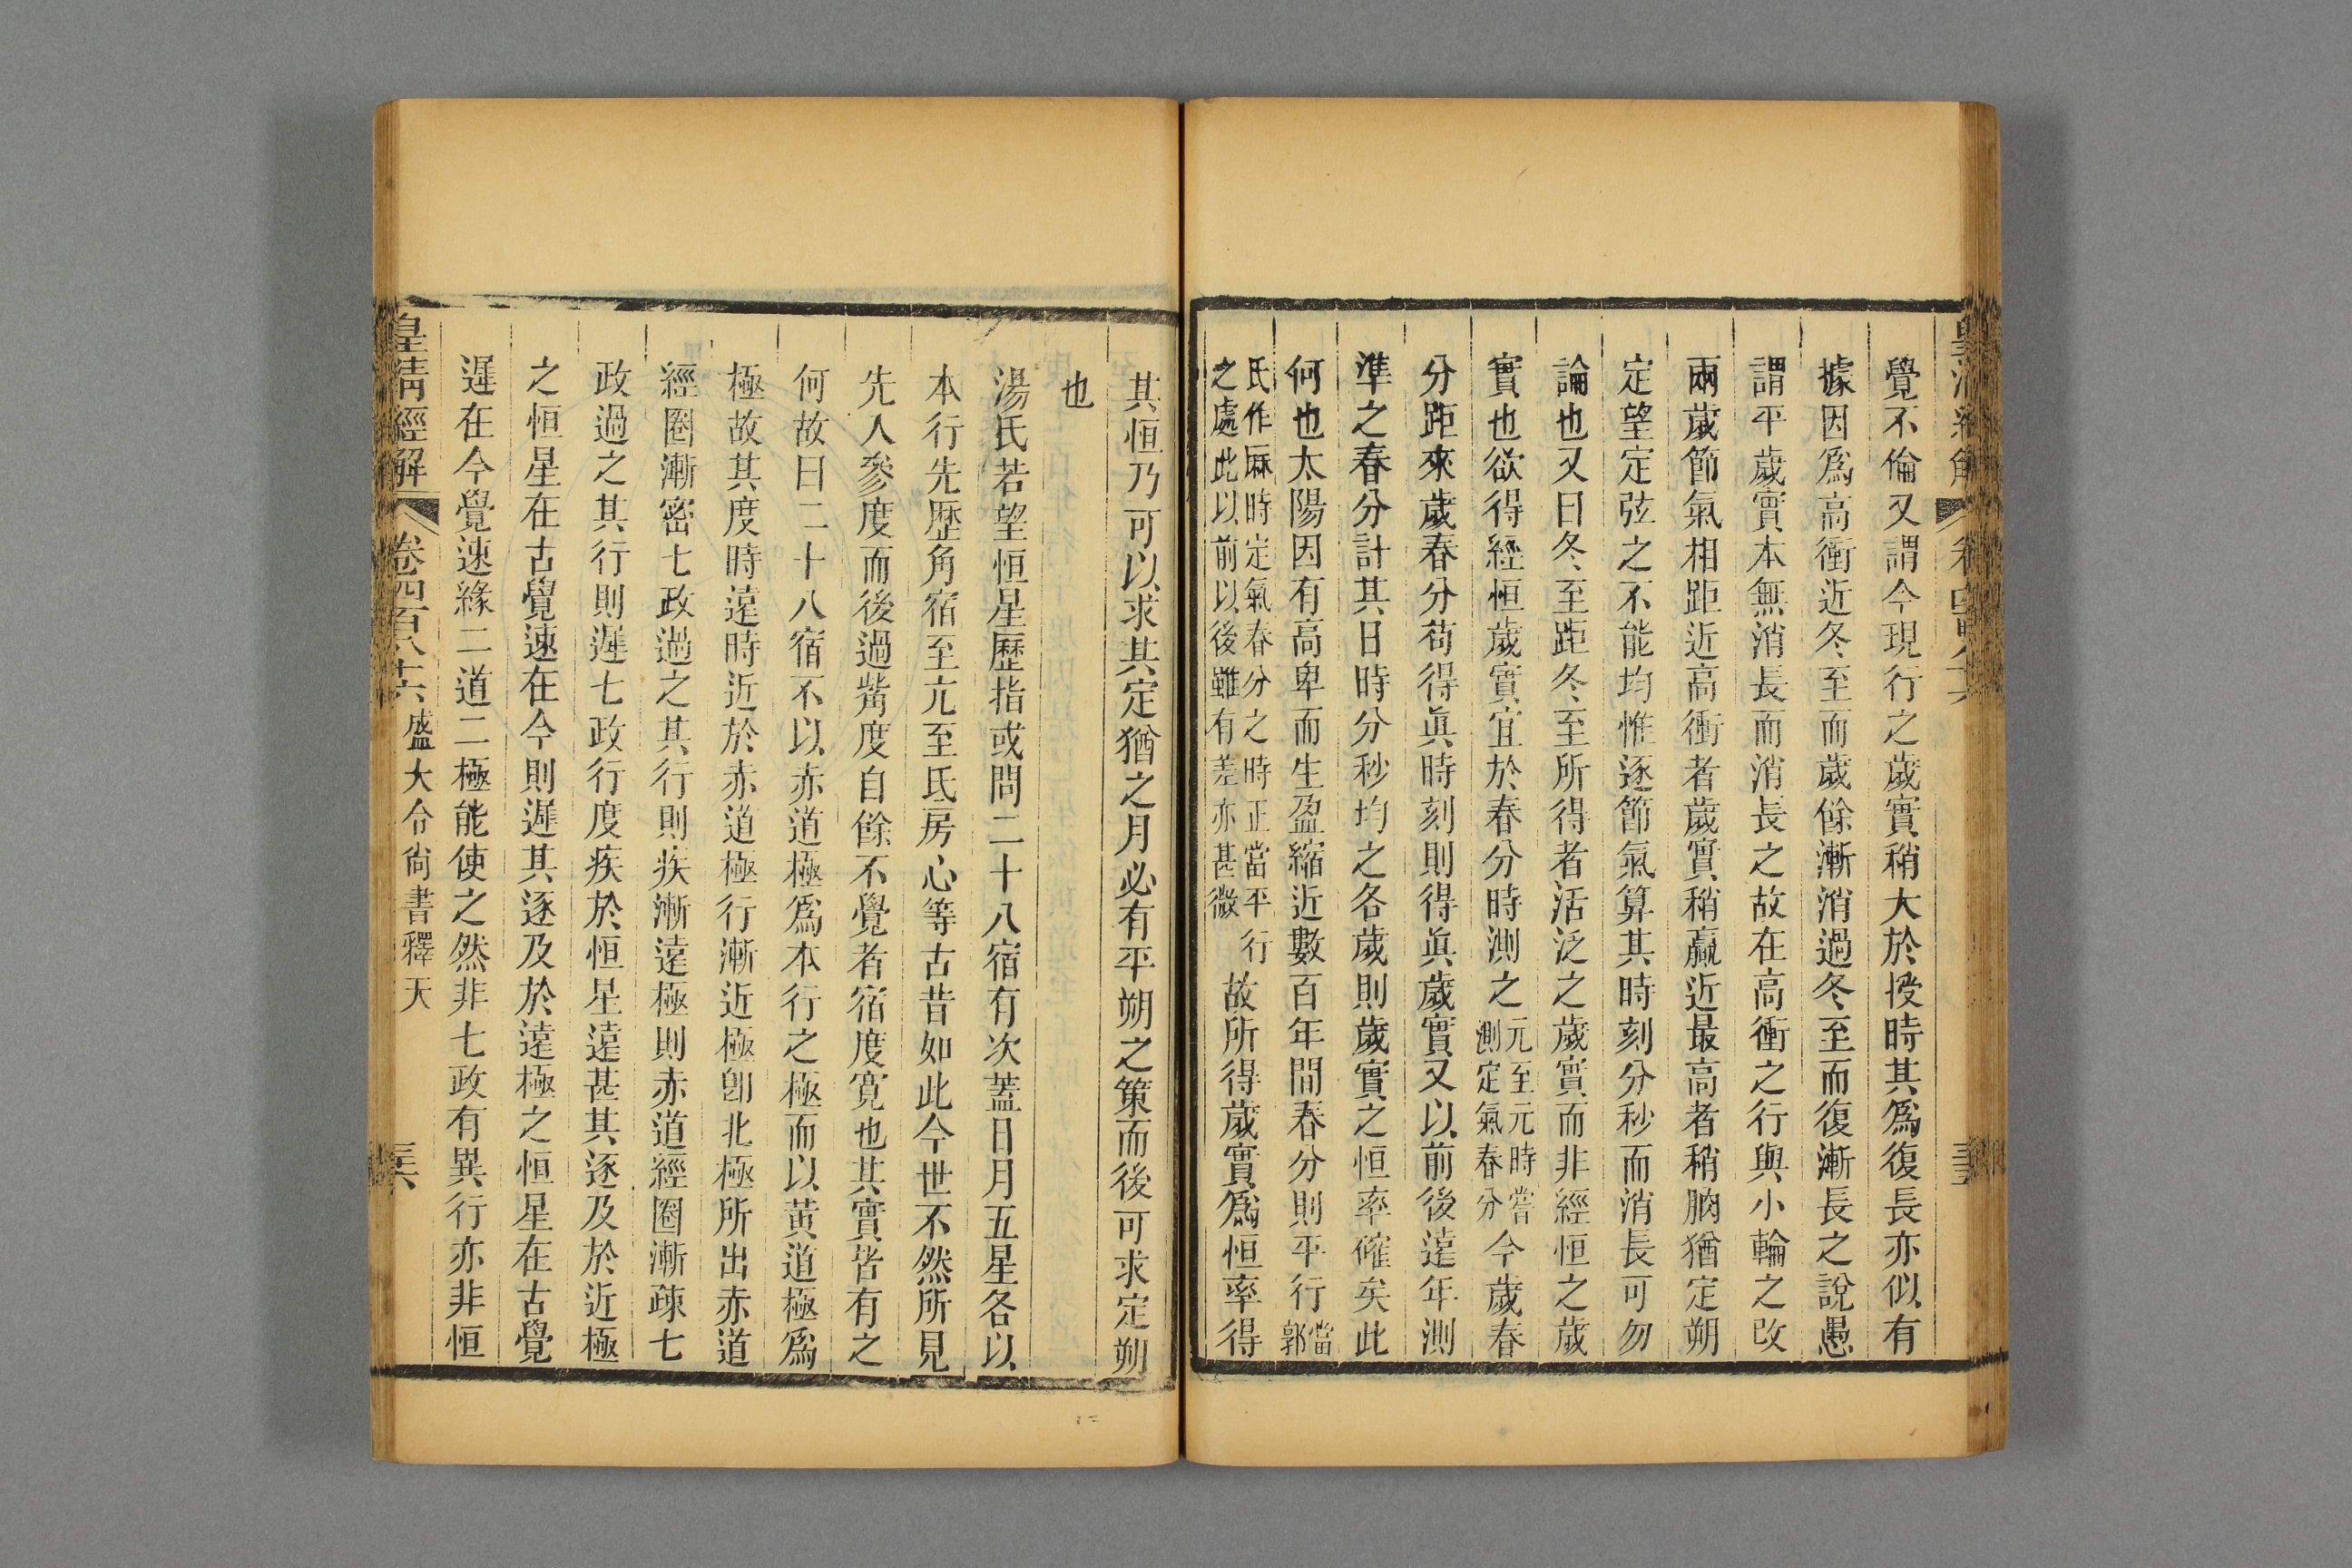 覺不倫又謂今現行之歲實稍大於授時其爲復長亦似有
據因爲高衝近冬至而歲餘漸消過冬至而復漸長之說愚
謂平歲實本無消長而消長之故在高衝之行與小輪之改
兩歲節氣相距近高衝者歲實稍贏近最高者稍朒猶定朔
定望定弦之不能均惟逐節氣算其時刻分秒而消長可勿
論也又曰冬至距冬至所得者活泛之歲實而非經恒之歲
實也欲得經恒歲實宜於春分時測之元至元時嘗測定氣春分今歲春
分距來歲春分苟得眞時刻則得眞歲實又以前後遠年測
準之春分計其日時分秒均之各歲則歲實之恒率確矣此
何也太陽因有高卑而生盈縮近數百年間春分則平行當郭
氏作厤時定氣春分之時正當平行之處此以前以後雖有差亦甚微故所得歲實爲恒率得
其恒乃可以求其定猶之月必有平朔之策而後可求定朔
也
湯氏若望恒星歷指或問二十八宿有次蓋日月五星各以
本行先歷角宿至亢至氐房心等古昔如此今世不然所見
先人參度而後過觜度自餘不覺者宿度寬也其實皆有之
何故曰二十八宿不以赤道極爲本行之極而以黃道極爲
極故其度時遠時近於赤道極行漸近極卽北極所出赤道
經圈漸密七政過之其行則疾漸遠極則赤道經圈漸疎七
政過之其行則遲七政行度疾於恒星遠甚其逐及於近極
之恒星在古覺速在今則遲其逐及於遠極之恒星在古覺
遲在今覺速緣二道二極能使之然非七政有異行亦非恒
皇清經解 卷四百八十六 盛大令尙書釋天